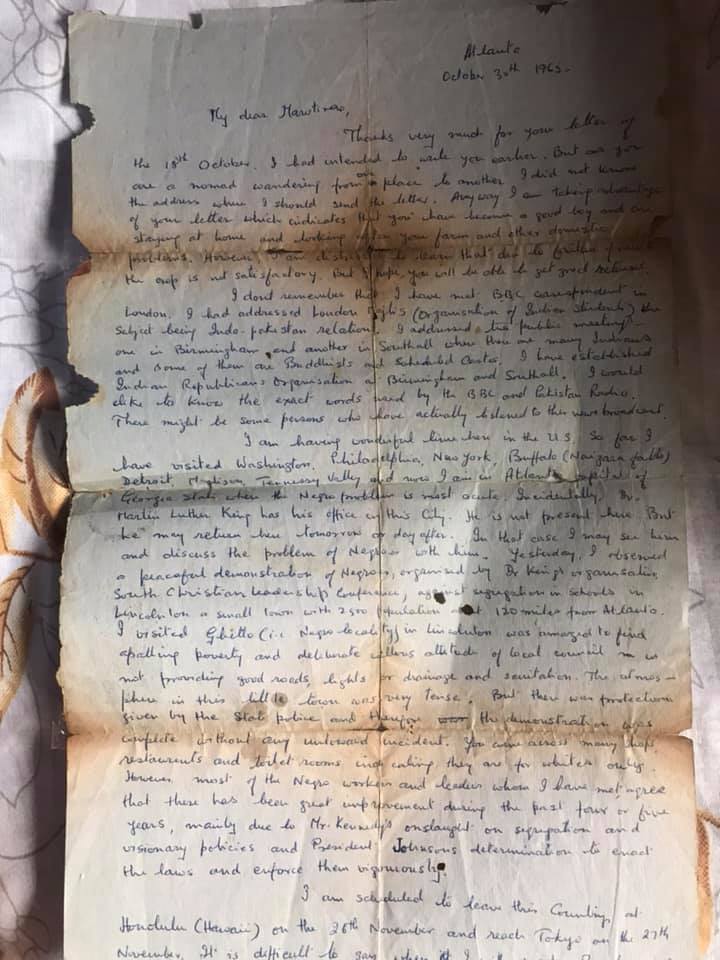 Atlanta
October 30th 1965.
My dear
Thanks very much for your letter of
the 18th October. I had intended to write you earlier. But as you
are a nomad wandering from one place to another I did not know
the address where I should send the letter. Any way I am taking advantage
of your letter which indicates that you have become a good boy and are
staying at home and looking after your farm and other domestic
problems. However I am to learn that due to
the crop is not satisfactory. But I hope, you will be able to get good
I dont remember that I have met BBC correspondent in
London. I had addressed London (Organisation of Indian Students) the
subject being Indo-pakistan relation. I addressed two public meetings
one in Birmingham and another in Southall where there are many Indians
and some of them are Buddhists and Scheduled Castes. I have established
Indian Republicans Organisation at Birmingham and Southall. I would
like to know the exact words used by the BBC and Pakistan Radio.
There might be some persons who have actually listened to this news broadcast.
I am having wonderful time here in the U.S. So far I
have visited Washington, Philadelphia, New York, Buffalo (Naigara falls)
Detroit, Madison, Tennessy Valley and now I am in Atlanta capital of
Georgia State where the Negro problem is most acute. Incidentally Dr.
Martin Luther King has his office in this City. He is not present here. But
he may return here tomorrow or day after. In that case I may see him
and discuss the problem of Negroes with him. Yesterday, I observed
a peaceful demonstration of Negroes, organised by Dr King's organisation
South Christian Leadership Conference, against segregation in schools in
Lincolnton a small town with 2500 population at 120 miles from Atlanta.
I visited Ghitto (i.e. Negro locality) in Lincolnton was amazed to find
apalling poverty and deliberate callous attitude of local council in
not providing good roads, lights or drainage and sanitation. The atmos-
phere in this little town was very tense. But there was protection
given by the State police and therefore the demonstration was
complete without any untoward incident. You come across many shops,
restaurants and toilet rooms indicating they are for whites only.
However most of the Negro workers and leaders whom I have met agree
that there has been great improvement during the past four or five
years, mainly due to Mr. Kennedy's onslaught on segregation and
visionary policies and President Johnsons determination to enact
the laws and enforce them vigourously.
I am scheduled to leave this Country at
Honolulu (Hawaii) on the 26th November and reach Tokyo on the 27th
November. It is difficult to say when